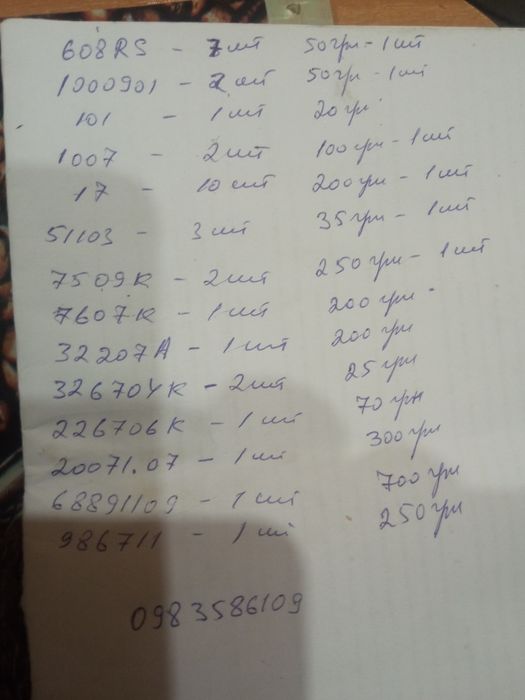 608RS - 7 шт 50грн - 1 шт
1000901 - 2 шт 50грн - 1 шт
101 - 1 шт 20грн
1007 - 2 шт 100грн - 1 шт
17 - 10 шт 200грн - 1 шт
51103 - 3 шт 35грн - 1 шт
7509К - 2 шт 250грн - 1 шт
7607К - 1 шт 200грн
32207А - 1 шт 200грн
326704К - 2 шт 25грн
226706К - 1 шт 70грн
20071.07 - 1 шт 300грн
68891109 - 1 шт 700грн
986711 - 1 шт 250грн
0983586109